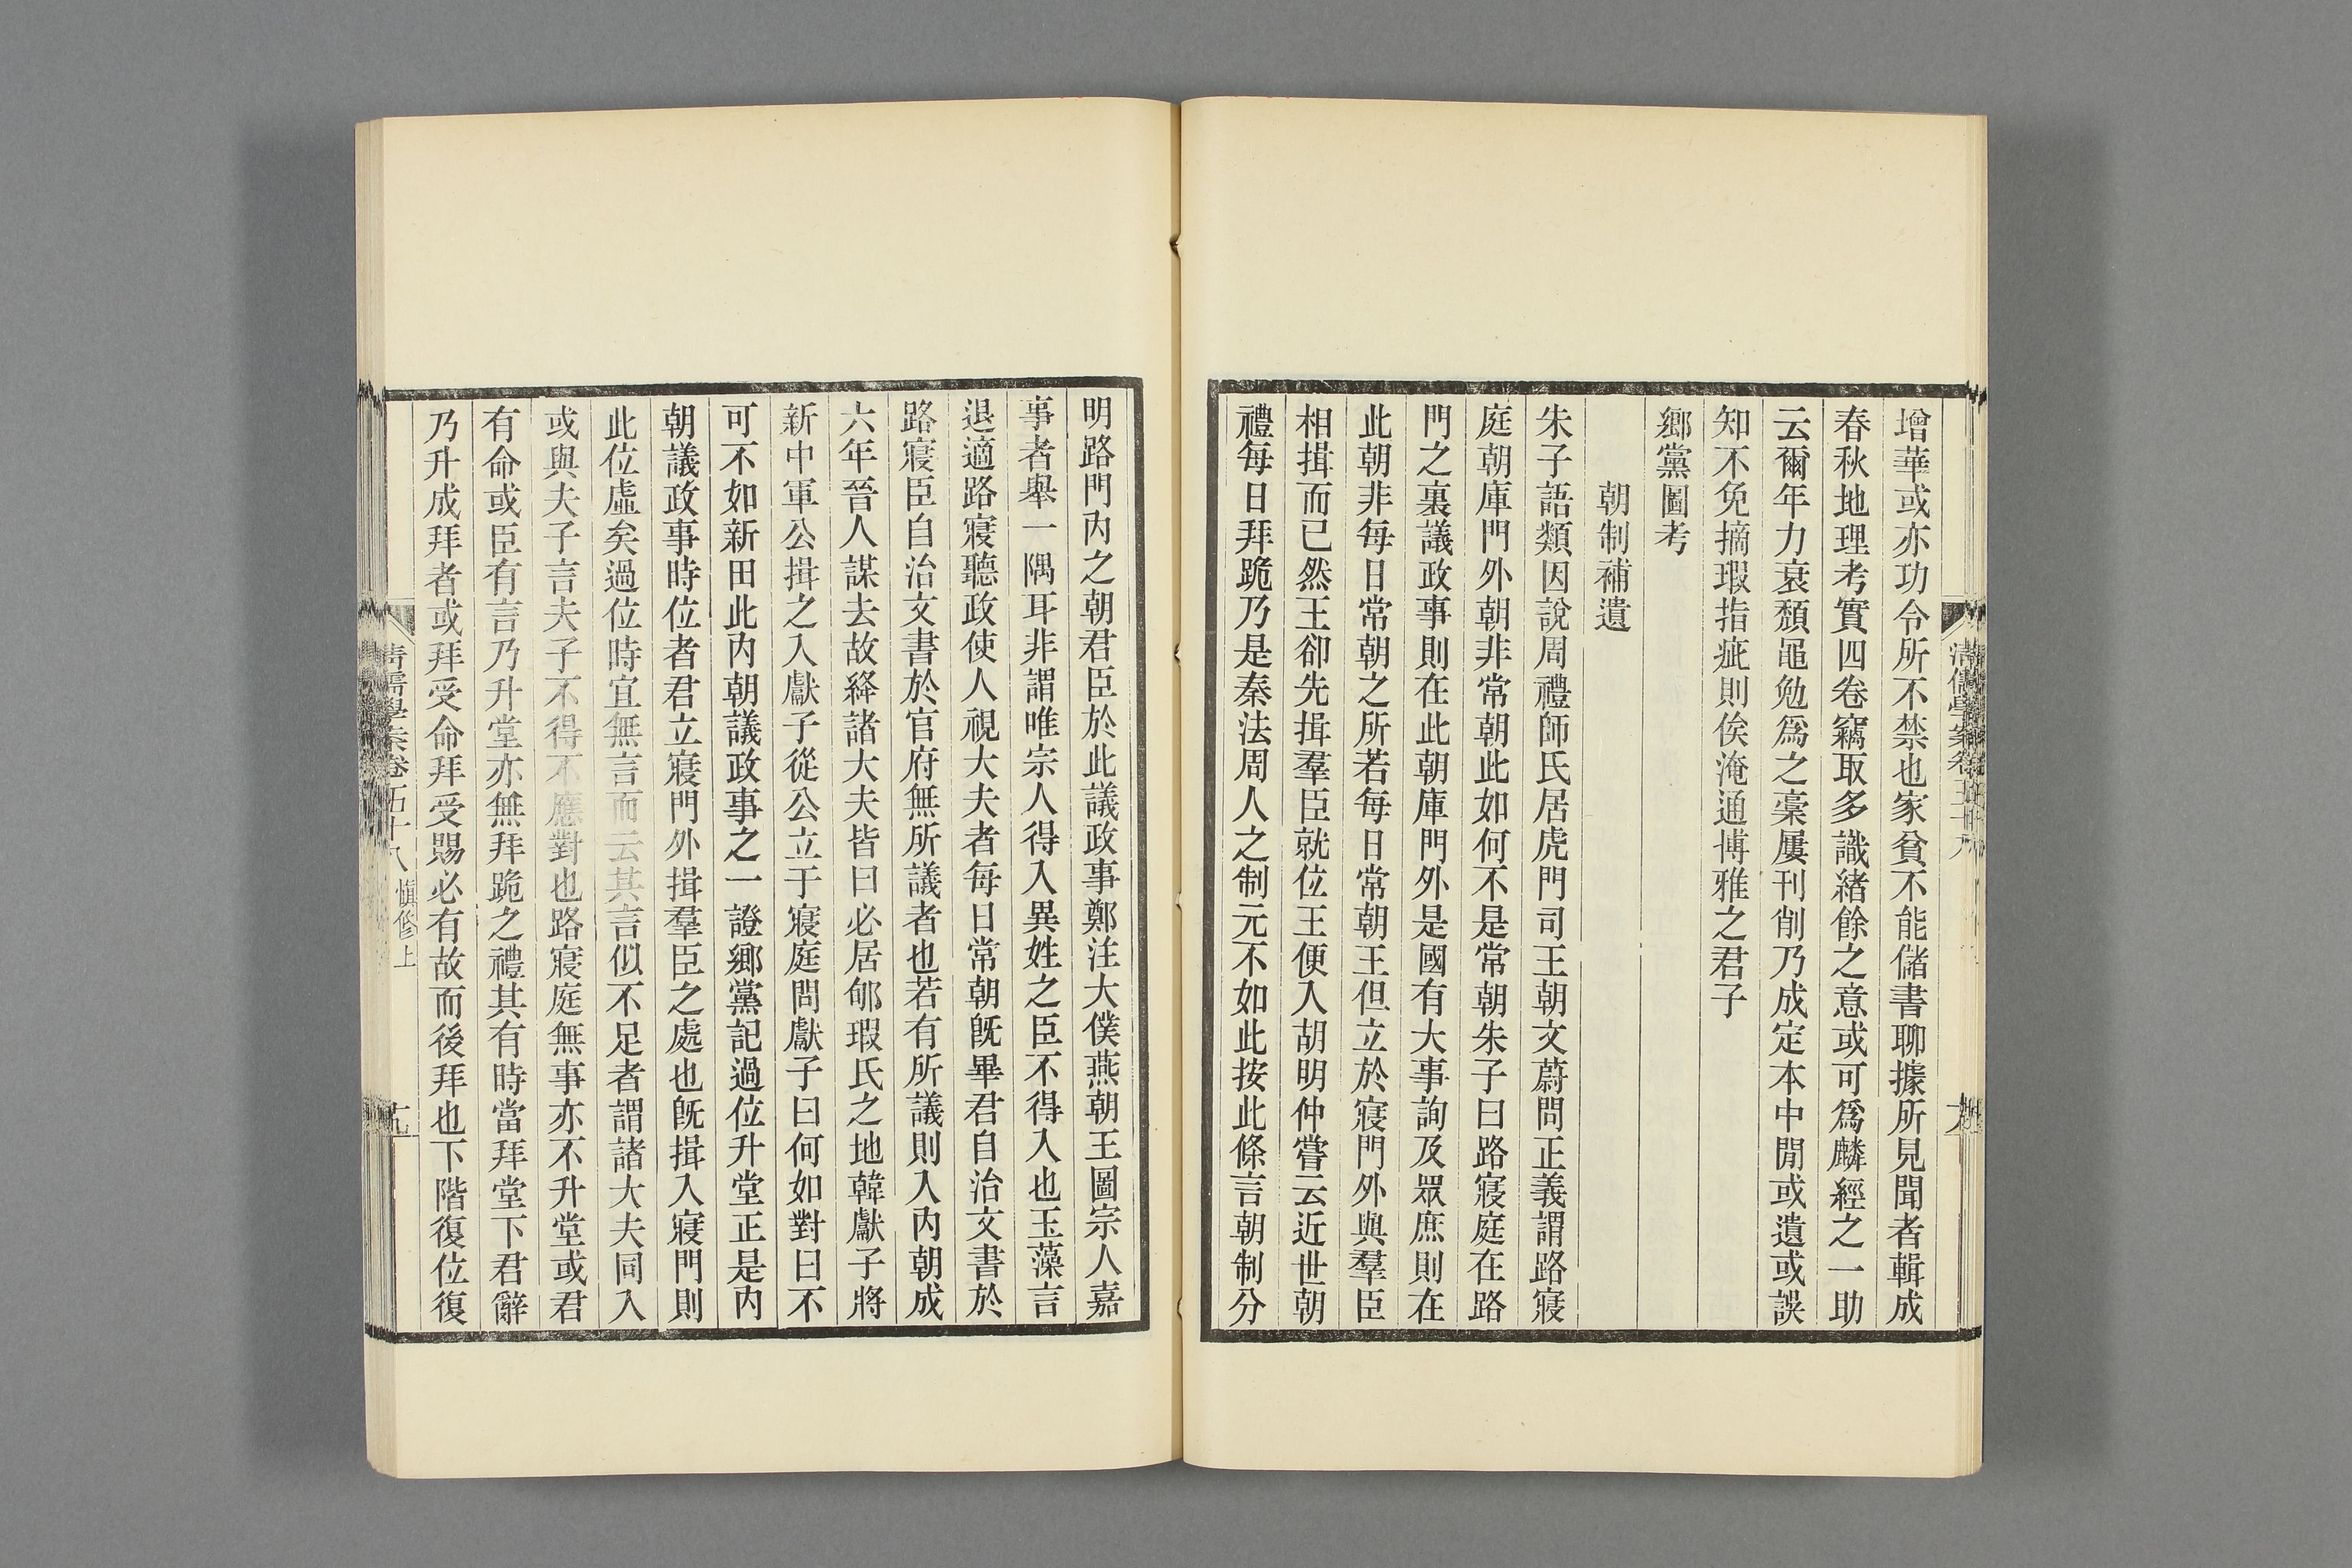 增華或亦功令所不禁也家貧不能儲書聊據所見聞者輯成
春秋地理考實四卷竊取多識緒餘之意或可爲麟經之一助
云爾年力衰頹黽勉爲之稾屢刊削乃成定本中閒或遺或誤
知不免摘瑕指疵則俟淹通博雅之君子
鄉黨圖考
朝制補遺
朱子語類因說周禮師氏居虎門司王朝文蔚問正義謂路寢
庭朝庫門外朝非常朝此如何不是常朝朱子曰路寢庭在路
門之裏議政事則在此朝庫門外是國有大事詢及眾庶則在
此朝非每日常朝之所若每日常朝王但立於寢門外與羣臣
相揖而已然王卻先揖羣臣就位王便入胡明仲嘗云近世朝
禮每日拜跪乃是秦法周人之制元不如此按此條言朝制分
明路門內之朝君臣於此議政事鄭注大僕燕朝王圖宗人嘉
事者舉一隅耳非謂唯宗人得入異姓之臣不得入也玉藻言
退適路寢聽政使人視大夫者每日常朝既畢君自治文書於
路寢臣自治文書於官府無所議者也若有所議則入內朝成
六年晉人謀去故絳諸大夫皆曰必居郇瑕氏之地韓獻子將
新中軍公揖之入獻子從公立于寢庭問獻子曰何如對曰不
可不如新田此內朝議政事之一證鄉黨記過位升堂正是內
朝議政事時位者君立寢門外揖羣臣之處也既揖入寢門則
此位虛矣過位時宜無言而云其言似不足者謂諸大夫同入
或與夫子言夫子不得不應對也路寢庭無事亦不升堂或君
有命或臣有言乃升堂亦無拜跪之禮其有時當拜堂下君辭
乃升成拜者或拜受命拜受賜必有故而後拜也下階復位復
清儒學案卷五十八 愼修上